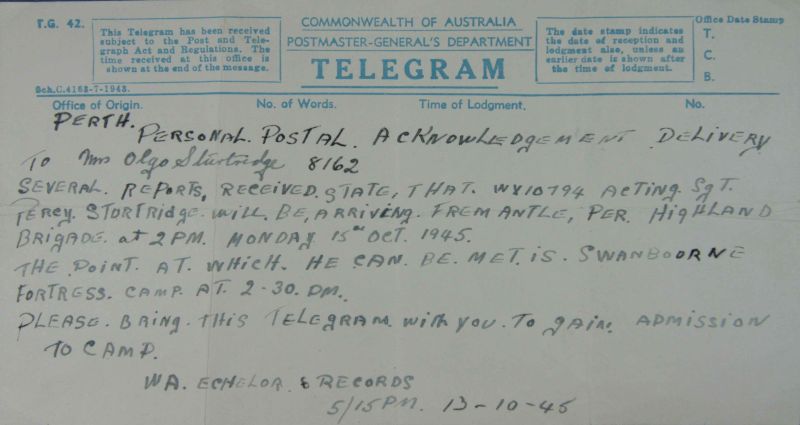 T.G. 42.
This Telegram has been received
subject to the Post and Tele-
graph Act and Regulations. The
time received at this office is
shown at the end of the message.
COMMONWEALTH OF AUSTRALIA
POSTMASTER-GENERAL'S DEPARTMENT
TELEGRAM
The date stamp indicates
the date of reception and
lodgment also, unless an
earlier date is shown after
the time of lodgment.
Office Date Stamp
T.
C.
B.
Sch.C.4163-7-1943.
Office of Origin. No. of Words. Time of Lodgment. No.
PERTH.
PERSONAL. POSTAL. ACKNOWLEDGEMENT DELIVERY
TO Mrs Olgo Sturtridge 8162
SEVERAL. REPORTS, RECEIVED. STATE, THAT. WX10794 ACTING. SgT.
PERCY. STURTRIDGE. WILL. BE, ARRIVING. FREMANTLE, PER. HIGHLAND
BRIGADE. at 2 PM. MONDAY 15th OCT. 1945.
THE POINT. AT. WHICH. HE CAN. BE. MET. IS. SWANBOURNE
FORTRESS. CAMP. AT. 2-30. PM.
PLEASE. BRING. THIS TELEGRAM. with you. TO gain. ADMISSION
TO CAMP.
WA. ECHELOR & RECORDS
5/15 PM. 13-10-45